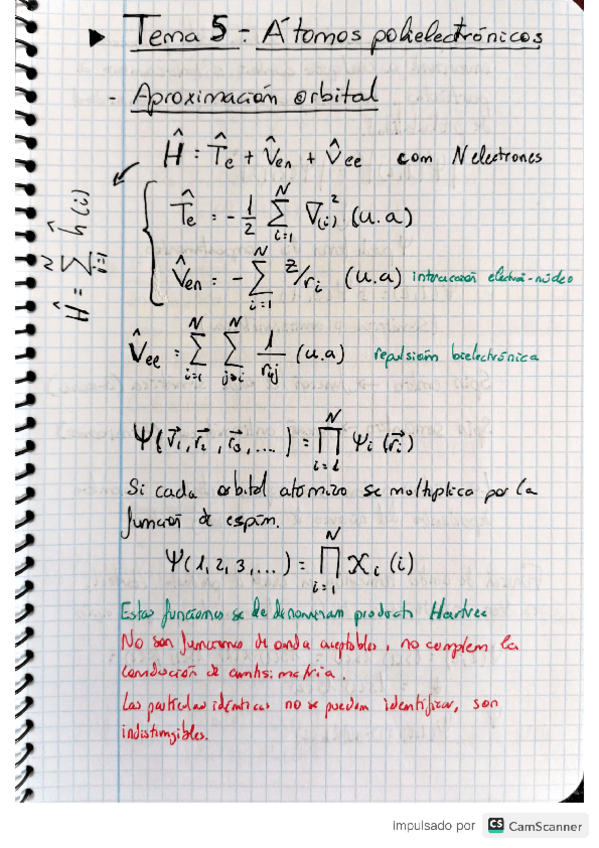 ▶ Tema 5 - Átomos polielectrónicos
- Aproximación orbital
Ĥ = T̂e + V̂en + V̂ee con N electrones
Ĥ = Σ(i=1→N) ĥ(i)
T̂e = -1/2 Σ(i=1→N) ∇(i)² (u.a)
V̂en = - Σ(i=1→N) Z/ri (u.a) interacción electrón-núcleo
V̂ee = Σ(i=1→N) Σ(j>i→N) 1/rij (u.a) repulsión bielectrónica
Ψ(r⃗1, r⃗2, r⃗3, ...) = Π(i=1→N) Ψi (r⃗i)
Si cada orbital atómico se multiplica por la
función de espín.
Ψ(1,2,3,...) = Π(i=1→N) Χi (i)
Estas funciones se de denominan producto Hartree
No son funciones de onda aceptables, no cumplen la
condición de antisimetría.
Las partículas idénticas no se pueden identificar, son
indistingibles.
Impulsado por CS CamScanner